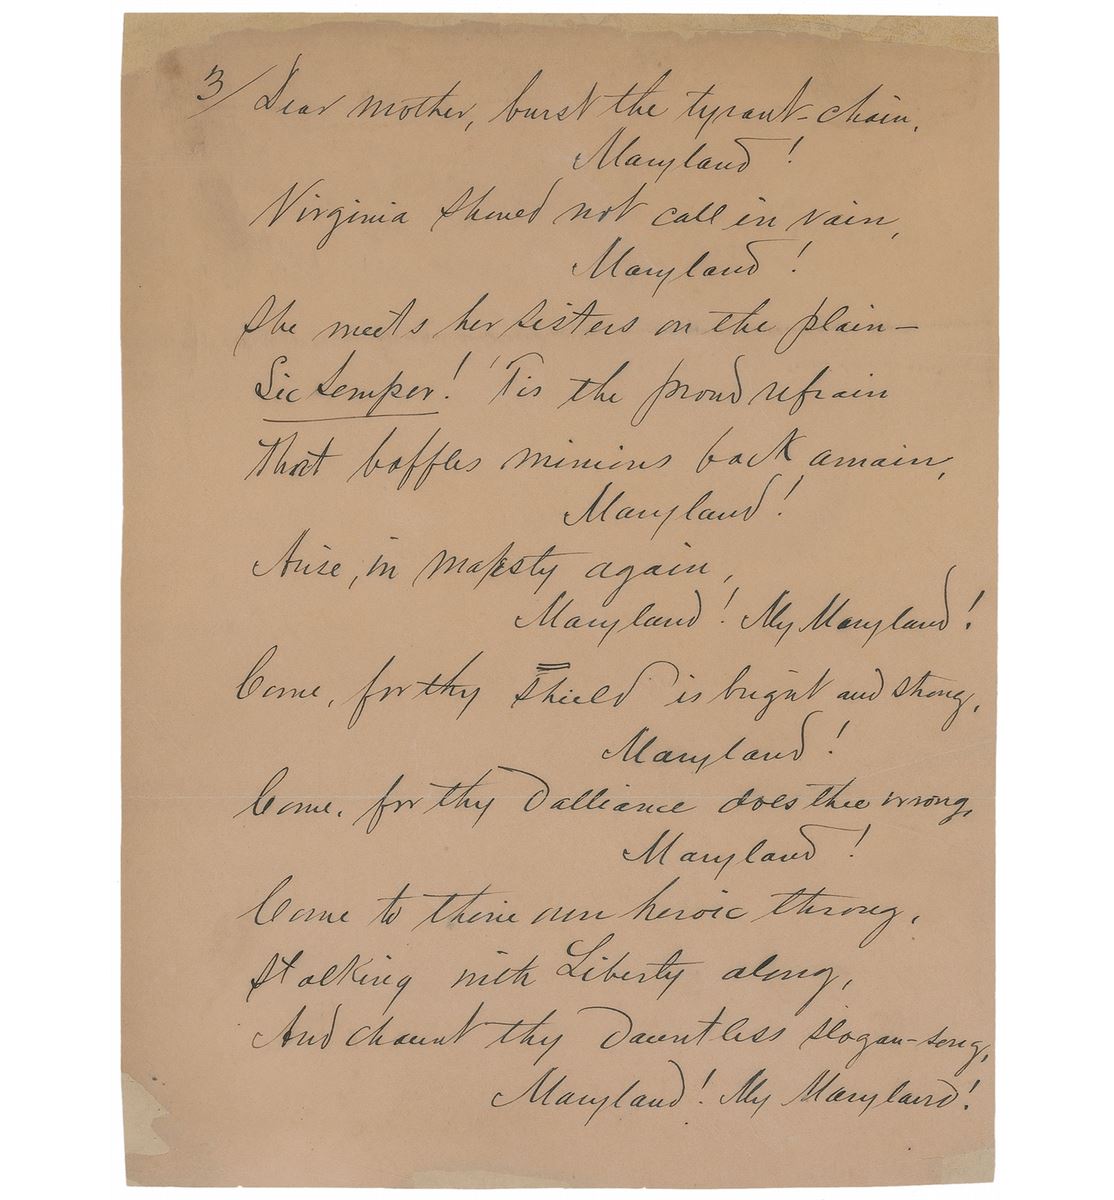 3/ Dear mother, burst the tyrant-chain,
Maryland!
Virginia should not call in vain,
Maryland!
She meets her sisters on the plain—
Sic semper! 'Tis the proud refrain
That baffles minions back amain,
Maryland!
Arise, in majesty again,
Maryland! My Maryland!
Come, for thy shield is bright and strong,
Maryland!
Come, for thy dalliance does thee wrong,
Maryland!
Come to thine own heroic throng,
Stalking with Liberty along,
And chaunt thy dauntless slogan-song,
Maryland! My Maryland!